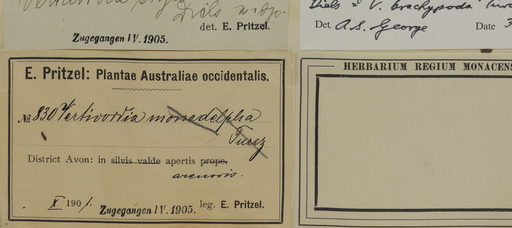 Diels n. sp.
det. E. Pritzel.
Zugegangen IV. 1905.
Diels = V. brachypoda Turcz
Det. A.S. George Date 3
E. Pritzel: Plantae Australiae occidentalis.
№ 830 Verticordia monadelpha
Turcz
District Avon: in silvis valde apertis prope.
arenosis.
X 1901. Zugegangen IV. 1905. leg. E. Pritzel.
HERBARIUM REGIUM MONACENS